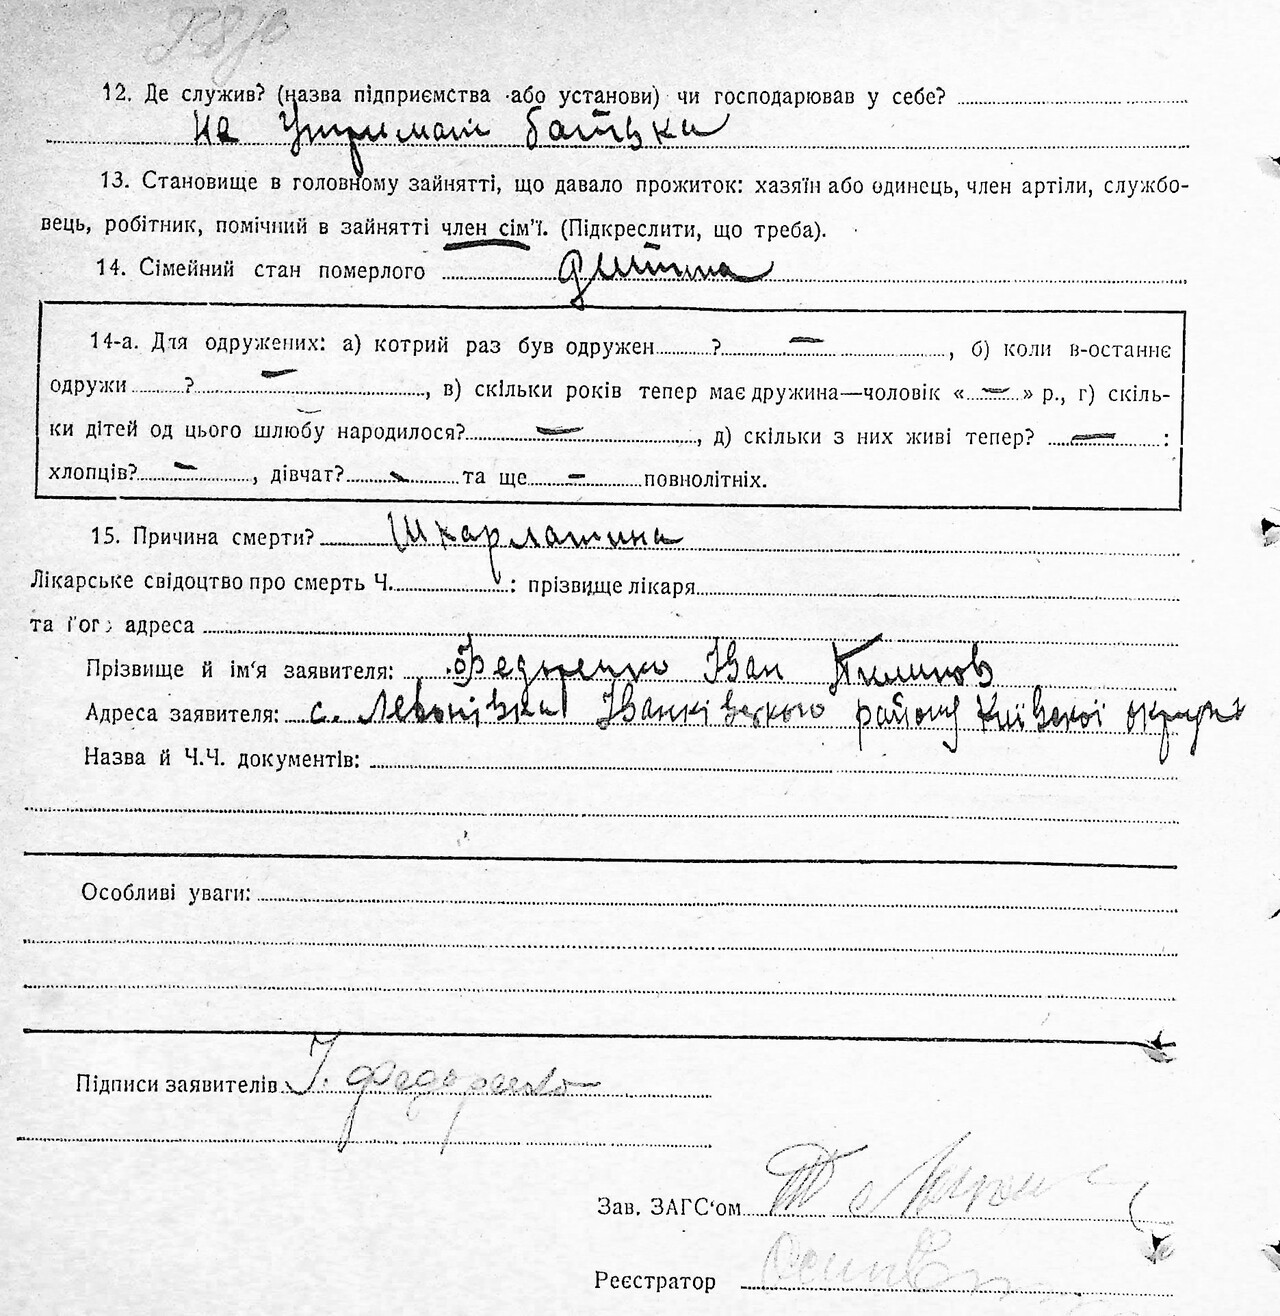 12. Де служив? (назва підприємства або установи) чи господарював у себе?
На Утримані батька
13. Становище в головному зайнятті, що давало прожиток: хазяїн або одинець, член артіли, службо-
вець, робітник, помічний в зайнятті член сім'ї. (Підкреслити, що треба).
14. Сімейний стан померлого дитина
14-а. Для одружених: а) котрий раз був одружен ? — , б) коли в-останнє
одружи ? — , в) скільки років тепер має дружина—чоловік « — » р., г) скіль-
ки дітей од цього шлюбу народилося? — , д) скільки з них живі тепер? — :
хлопців? — , дівчат? — та ще — повнолітніх.
15. Причина смерти? Шкарлатина
Лікарське свідоцтво про смерть Ч. : прізвище лікаря
та його адреса
Прізвище й ім'я заявителя: Федоренко Іван
Адреса заявителя: с. Левонівка Іванківського району Київської округи
Назва й Ч.Ч. документів:
Особливі уваги:
Підписи заявителів І. Федоренко
Зав. ЗАГС'ом
Реєстратор